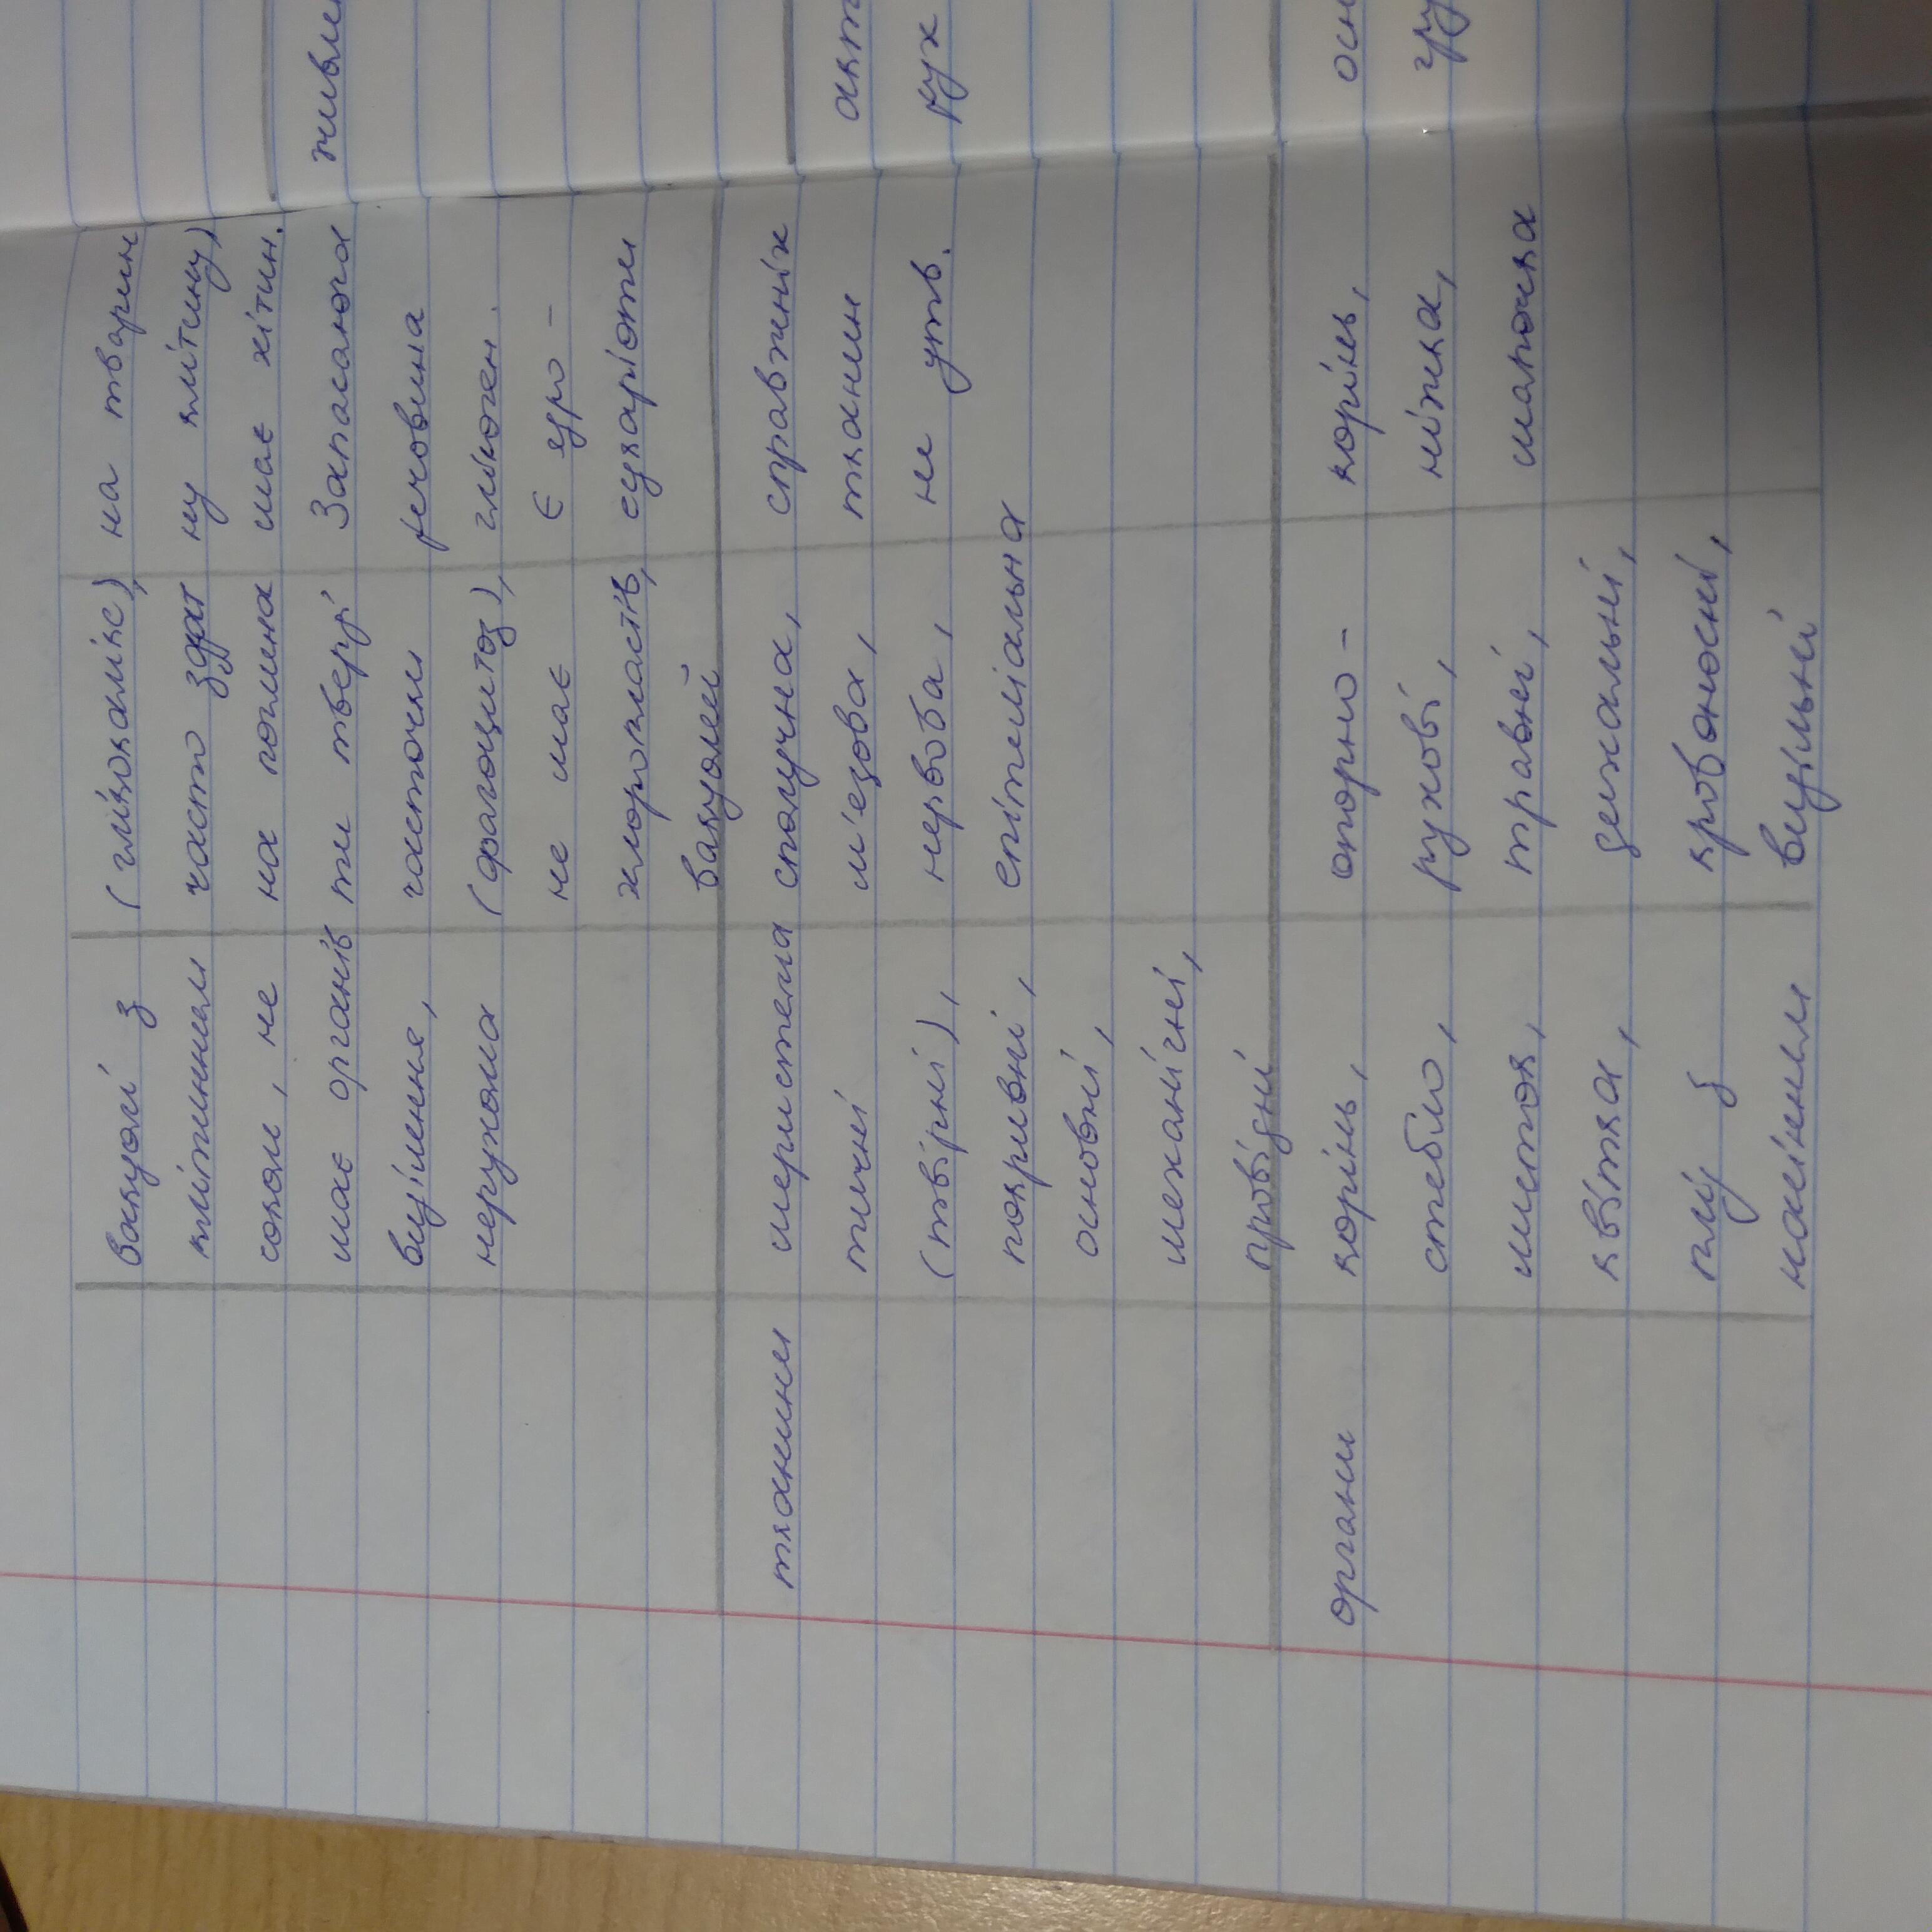 вакуолі з
клітинним
соком, не
має органів
виділення,
нерухома
(глікокалікс),
часто здат
на поглина
ти тверді
часточки
(фагоцитоз),
не має
хлоропластів,
вакуолей
на тварин
ну клітину)
має хітин.
Запасаюча
речовина
глікоген.
Є ядро -
еукаріоти
тканини
меристема
тичні
(твірні),
покривні,
основні,
механічні,
провідні
сполучна,
м'езова,
нервова,
епітеліальна
справжніх
тканин
не утв.
органи
корінь,
стебло,
листок,
квітка,
плід з
насінням
опорно-
рухові,
травні,
дихальні,
кровоносні,
видільні
корінь,
ніжка,
шапочка
живлен
акт
рух
осн
гру